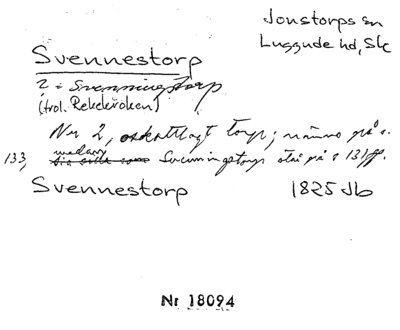 Jonstorps sn
Luggude hd, Sk
Svennestorp
? = Svenningstorp
(trol. Rekekroken)
Nr 2, oskattlagt torp; nämns på s.
133, medan Svenningstorp står på s 131 ff.
Svennestorp 1825 Jb
Nr 18094